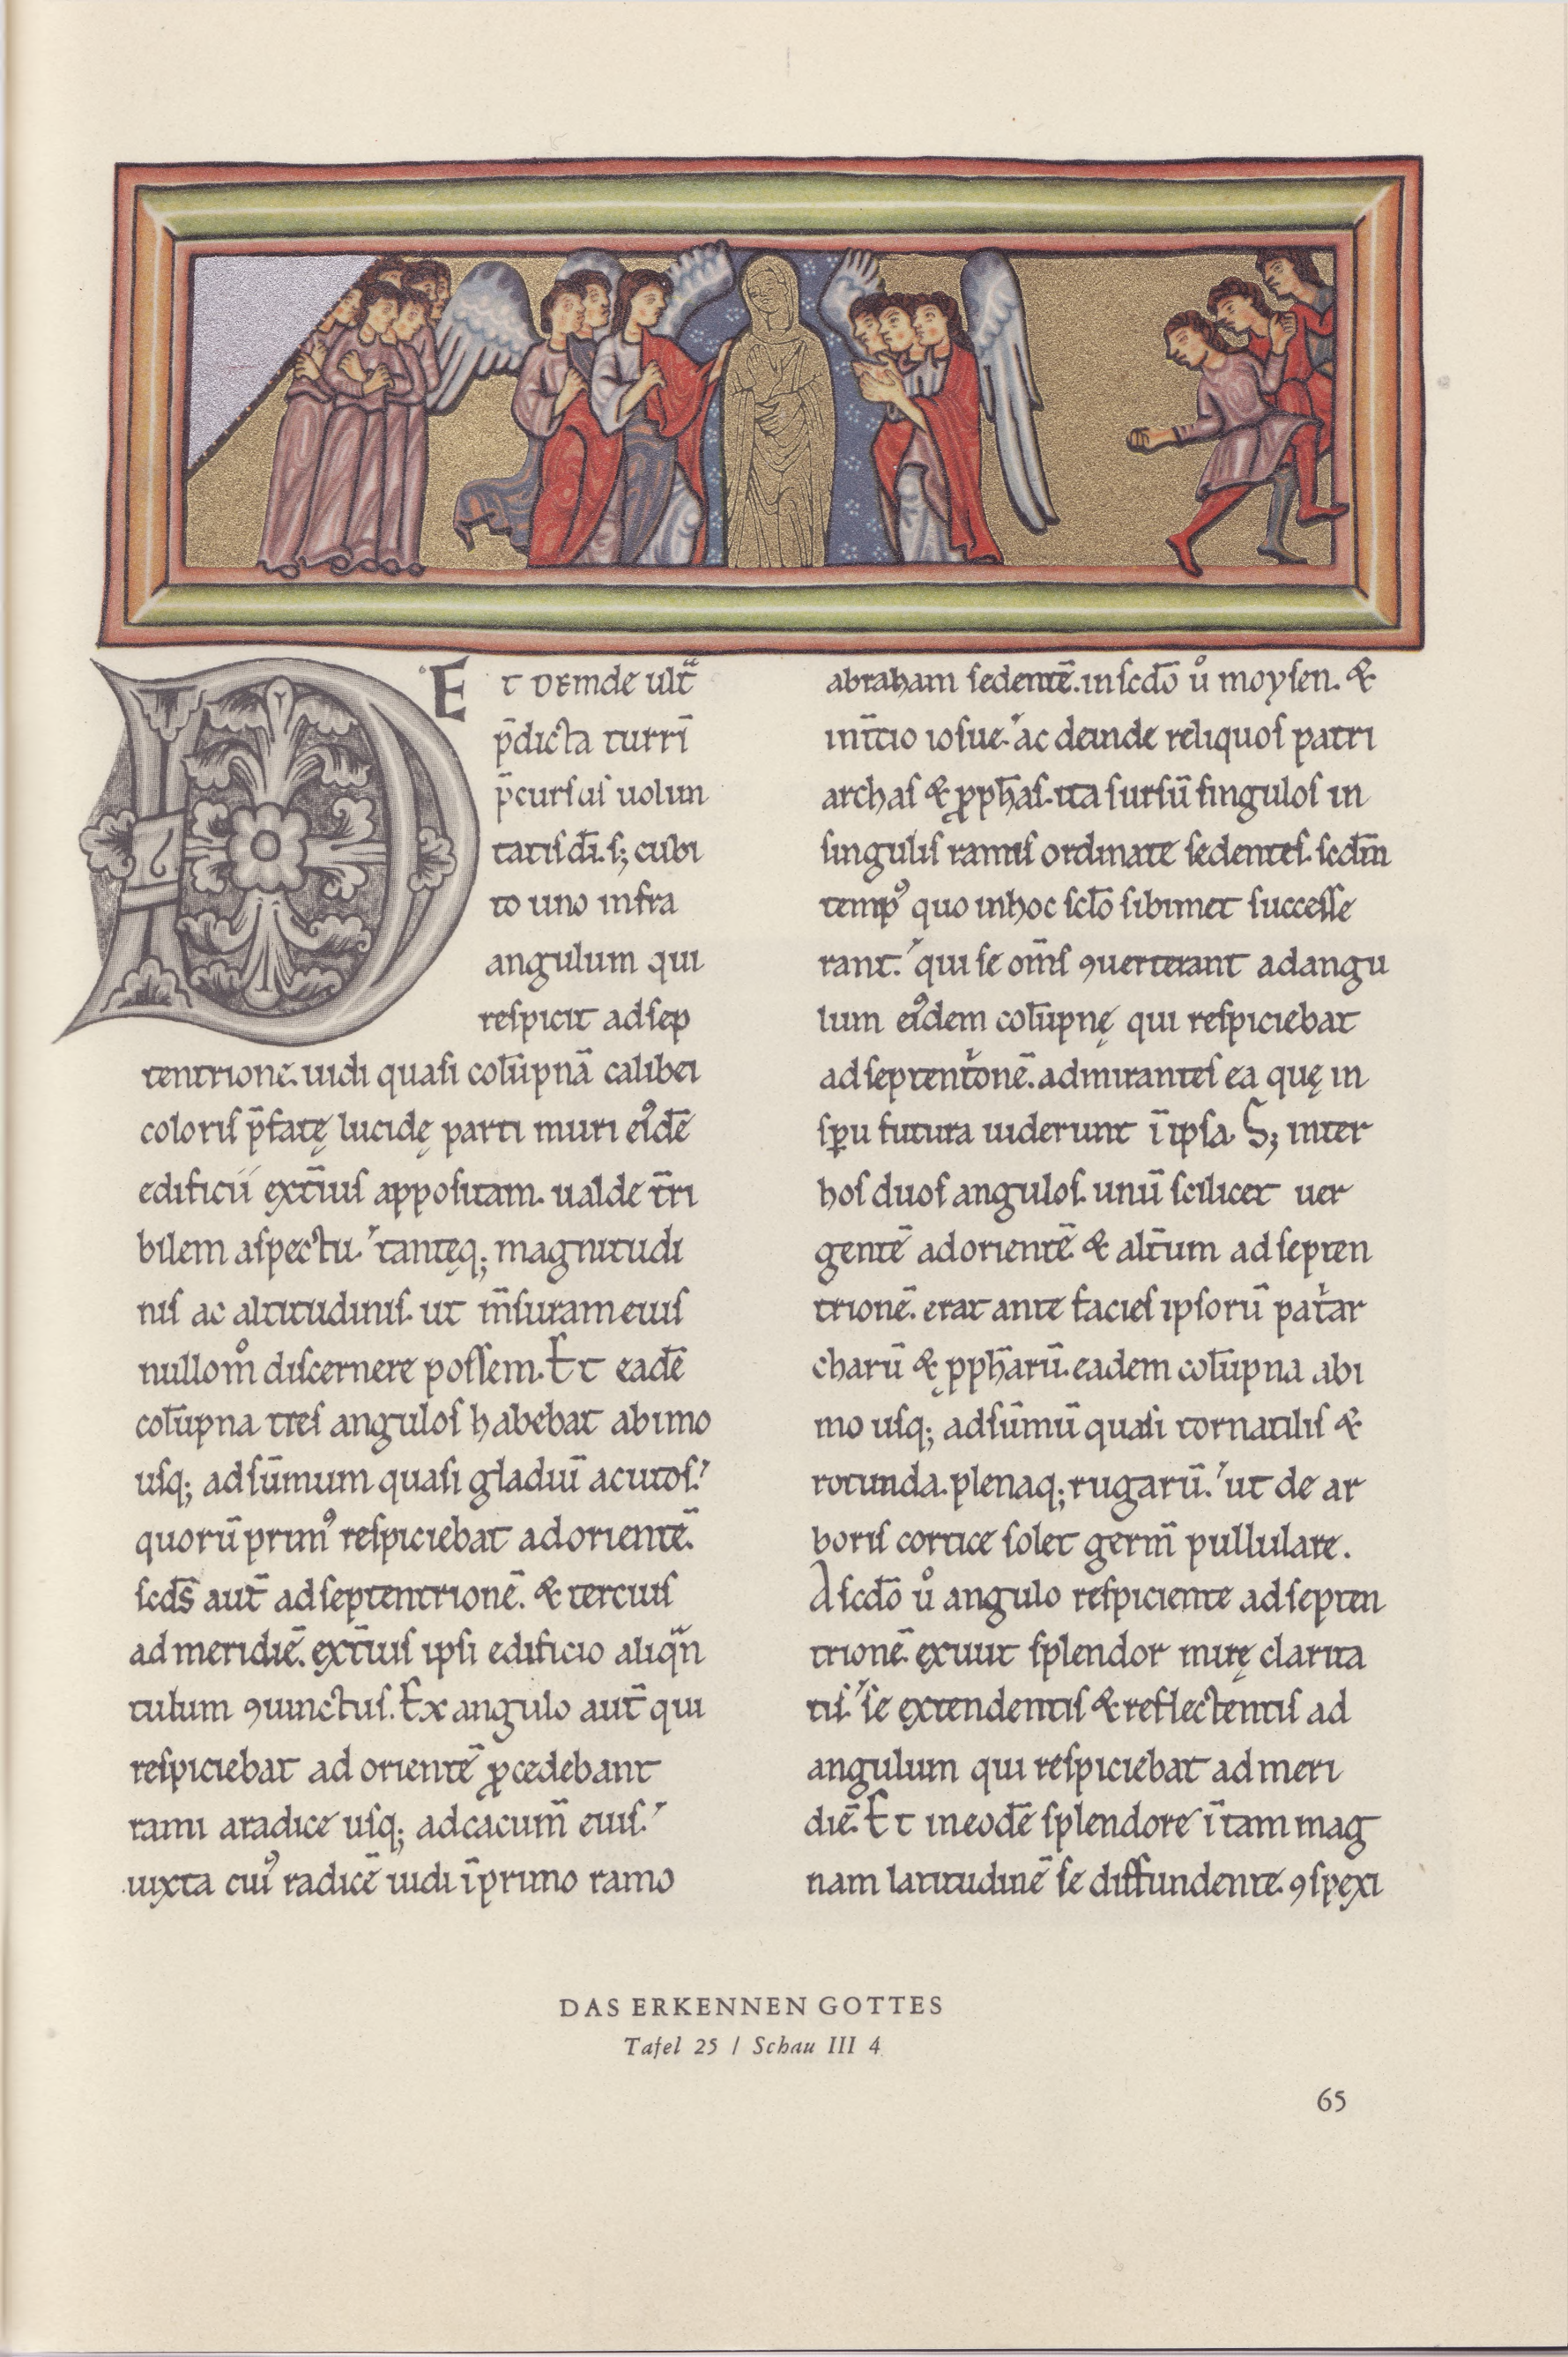 Et deinde ultᷓ
p̄dicta turrī
p̄cursus uolun
tatis dī. s; cubi
to uno infra
angulum qui
respicit ad sep
tentrionē. uidi quasi colūpnā calibei
coloris p̄fatę lucidę parti muri eiꝰdē
edificii ext̄ius appositam. ualde t̄ri
bilem aspectu. tantęq; magnitudi
nis ac altitudinis. ut m̄suram eius
nullom̊ discernere possem. Et eadē
colūpna tres angulos habebat ab imo
usq; ad sūmum quasi gladiū acutos.
quorū primꝰ respiciebat ad orientē.
scd̄s aut̄ ad septentrionē. & tercius
ad meridiē. ext̄ius ipsi edificio aliqᷓn
tulum ꝯiunctus. Ex angulo aut̄ qui
respiciebat ad orientē ꝓcedebant
rami a radice usq; ad cacum̄ eius.
iuxta cuiꝰ radicē uidi ī primo ramo
abraham sedentē. in scd̄o ů moysen. &
in t̄cio iosue. ac deinde reliquos patri
archas & ꝓph̄as. ita sursū singulos in
singulis ramis ordinate sedentes. scd̄m
tempꝰ quo in hoc scl̄o sibimet successe
rant. qui se om̄s ꝯuerterant ad angu
lum eiꝰdem colūpnę qui respiciebat
ad septentͥonē. admirantes ea quę in
sp̄u futura uiderunt ī ipsa. S; inter
hos duos angulos. unū scilicet uer
gentē ad orientē & alt̄um ad septen
trionē. erat ante facies ipsorū patͥar
charū & ꝓph̄arū. eadem colūpna ab i
mo usq; ad sūmū quasi tornatilis &
rotunda. plenaq; rugarū. ut de ar
boris cortice solet germ̄ pullulare.
A scd̄o ů angulo respiciente ad septen
trionē. exiuit splendor mirę clarita
tis. se extendentis & reflectentis ad
angulum qui respiciebat ad meri
diē. Et in eodē splendore ī tam mag
nam latitudinē se diffundente. ꝯspexi
DAS ERKENNEN GOTTES
Tafel 25 / Schau III 4
65